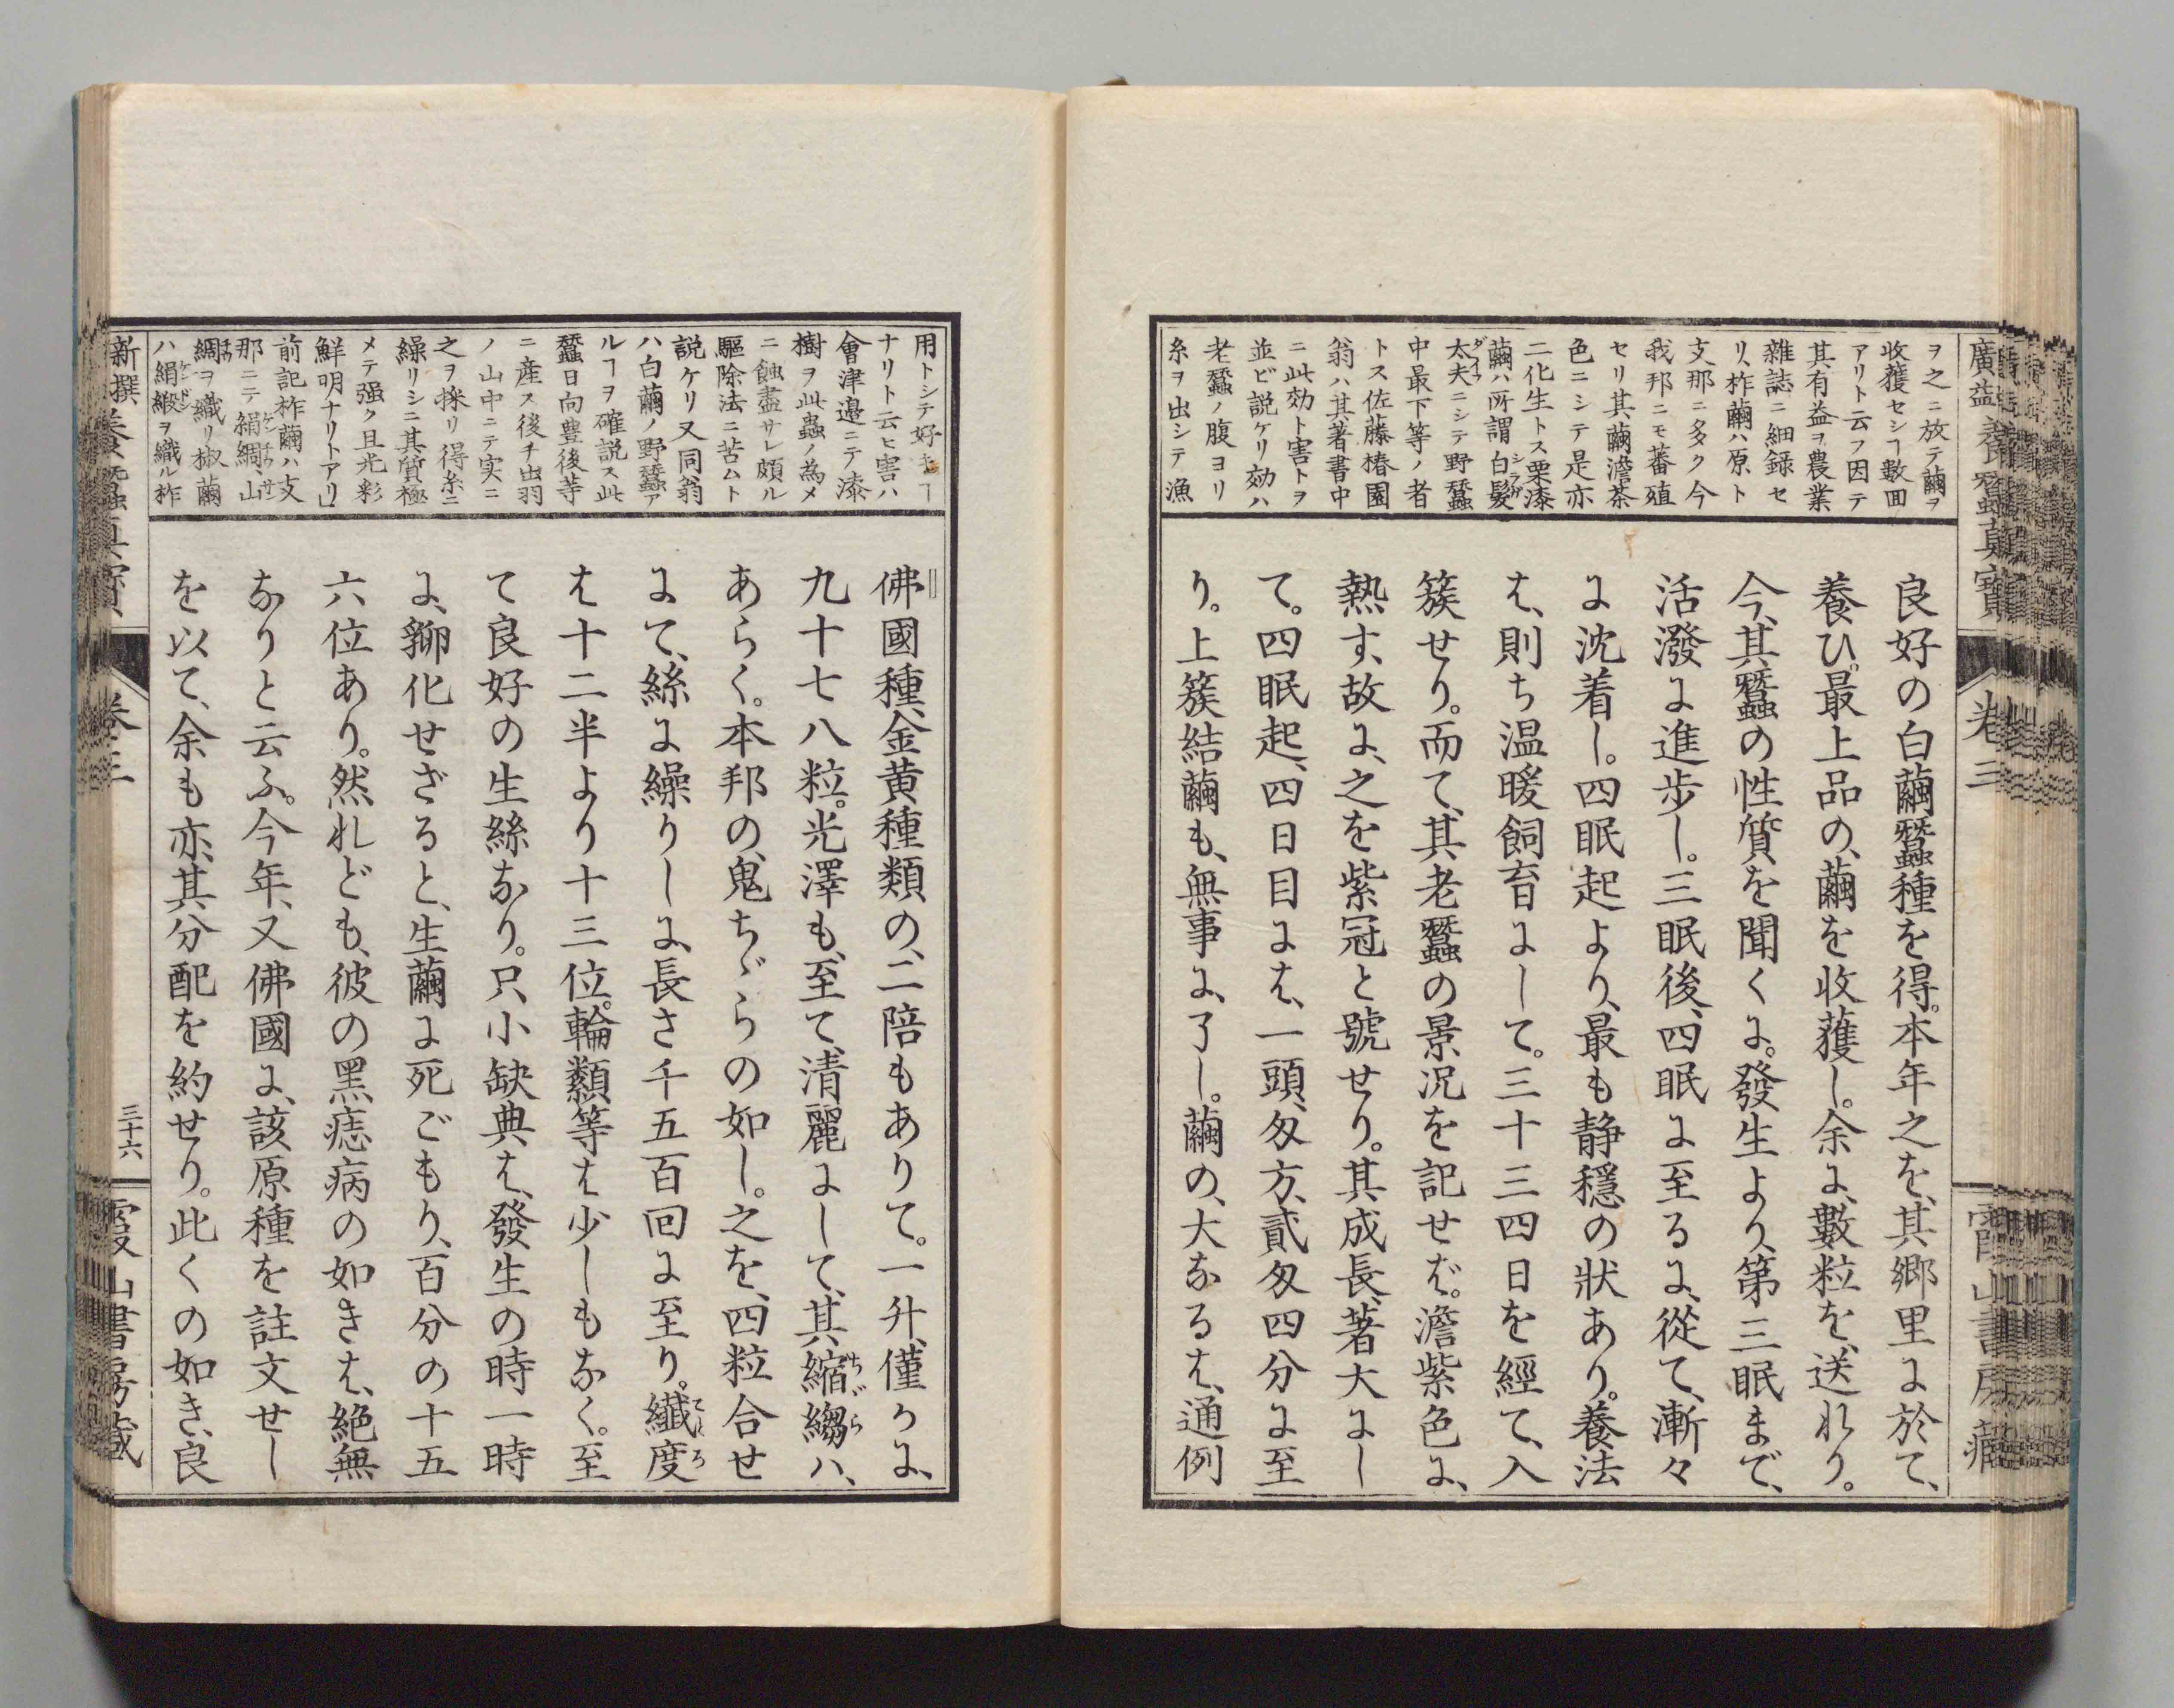 ヲ之ニ放テ繭ヲ
收獲セシヿ數囬
アリト云フ因テ
其有益ヲ農業
雜誌ニ細録セ
リ、柞繭ハ原ト
支那ニ多ク今
我邦ニモ蕃殖
セリ其繭澹茶
色ニシテ是亦
二化生トス栗漆
繭ハ所謂白髮
太夫ニシテ野蠶
中最下等ノ者
トス佐藤椿園
翁ハ其著書中
ニ此効ト害トヲ
並ビ説ケリ効ハ
老蠶ノ腹ヨリ
糸ヲ出シテ漁
良好の白繭蠶種を得。本年之を、其郷里に於て、
養ひ。最上品の、繭を收獲し。余に、數粒を、送れり。
今、其蠶の性質を聞くに。發生より、第三眠まで、
活潑に進歩し。三眠後、四眠に至るに、從て、漸々
に沈着し。四眠起より、最も静穏の狀あり。養法
は、則ち温暖飼育にして。三十三四日を經て、入
簇せり。而て、其老蠶の景况を記せば。澹紫色に、
熱す、故に、之を紫冠と號せり。其成長、著大にし
て。四眠起、四日目には、一頭、匁方、貳匁四分に至
り。上簇結繭も、無事に、了し。繭の、大なるは、通例
廣益
卷三
用トシテ好
ナリト云ヒ害ハ
會津邉ニテ漆
樹ヲ此蟲ノ為メ
ニ蝕盡サレ頗ル
驅除法ニ苦ムト
説ケリ又同翁
ハ白繭ノ野蠶ア
ルヿヲ確説ス此
蠶日向豊後等
ニ産ス後チ出羽
ノ山中ニテ実ニ
之ヲ採リ得糸ニ
繰リシニ其質極
メテ强ク且光彩
鮮明ナリトアリ」
前記柞繭ハ支
那ニテ絹綢、山
綢ヲ織リ椒繭
ハ絹緞ヲ織ル柞
佛國種、金黄種類の、二陪もありて。一升、僅かに、
九十七八粒。光澤も、至て、清麗にして、其縮縐ハ、
あらく。本邦の、鬼ちゞらの如し。之を、四粒合せ
にて、絲に繰りしに、長さ千五百回に至り。纎度
は十二半より十三位。輪纇等は少しもなく。至
て良好の生絲なり。只、小缺典は、發生の時一時
に、孵化せざると、生繭に死ごもり、百分の十五
六位あり。然れども、彼の黑痣病の如きは、絶無
なりと云ふ。今年、又佛國に、該原種を註文せし
を以て、余も亦、其分配を約せり。此くの如き、良
新撰
三十六